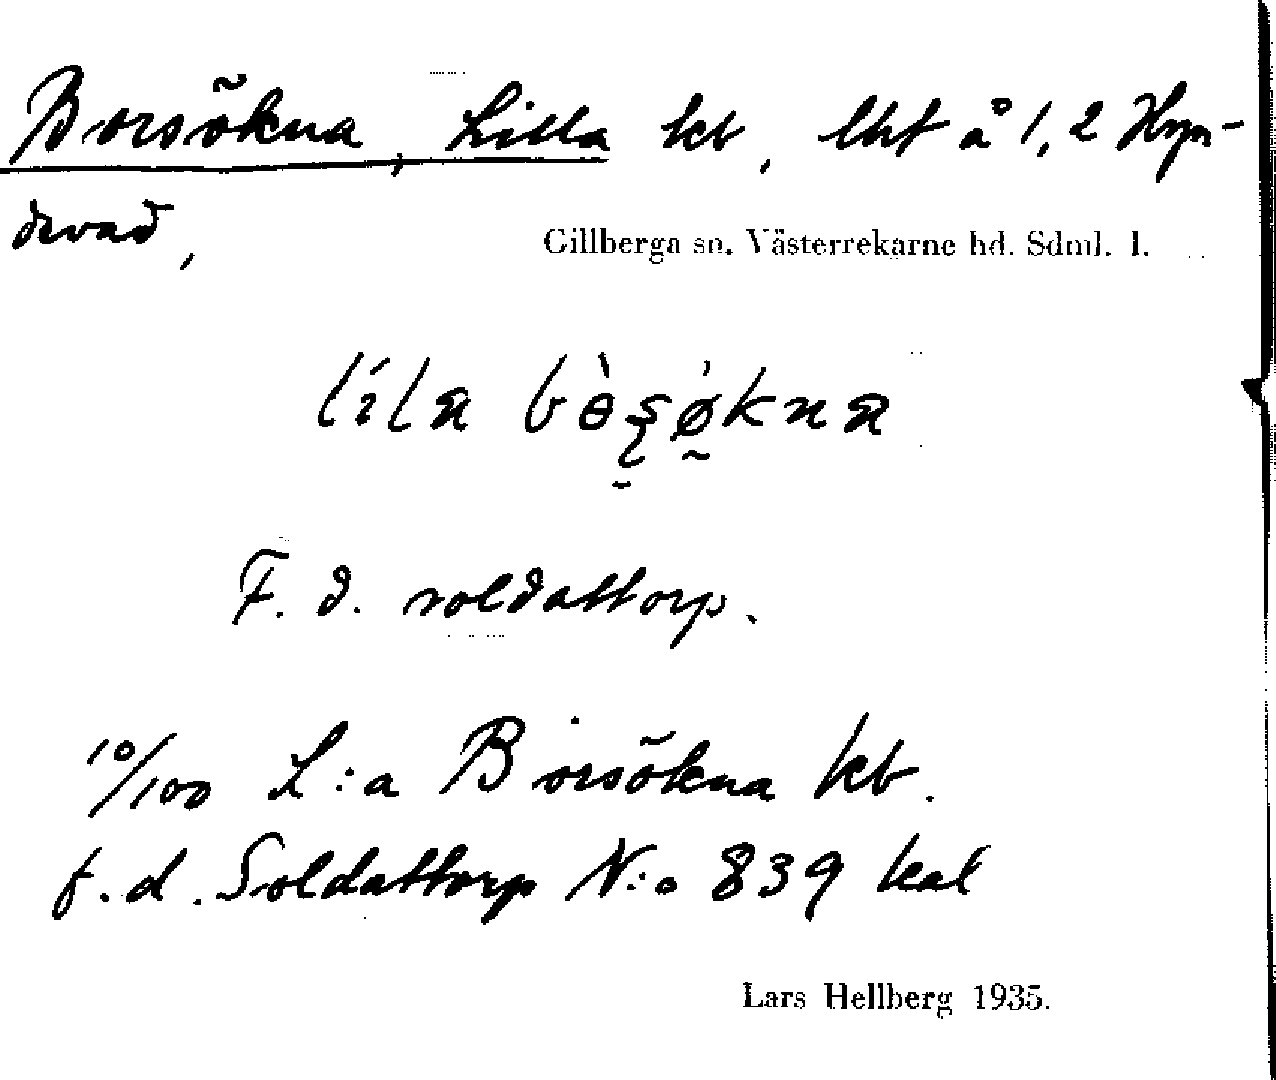 Borsökna, Lilla kb, lht å 1, 2 Hyn-
devad,
Gillberga sn. Västerrekarne hd. Sdml. l.
F. d. soldattorp.
10/100 L:a Borsökna kb.
f. d. Soldattorp N:o 839 kal
Lars Hellberg 1935.